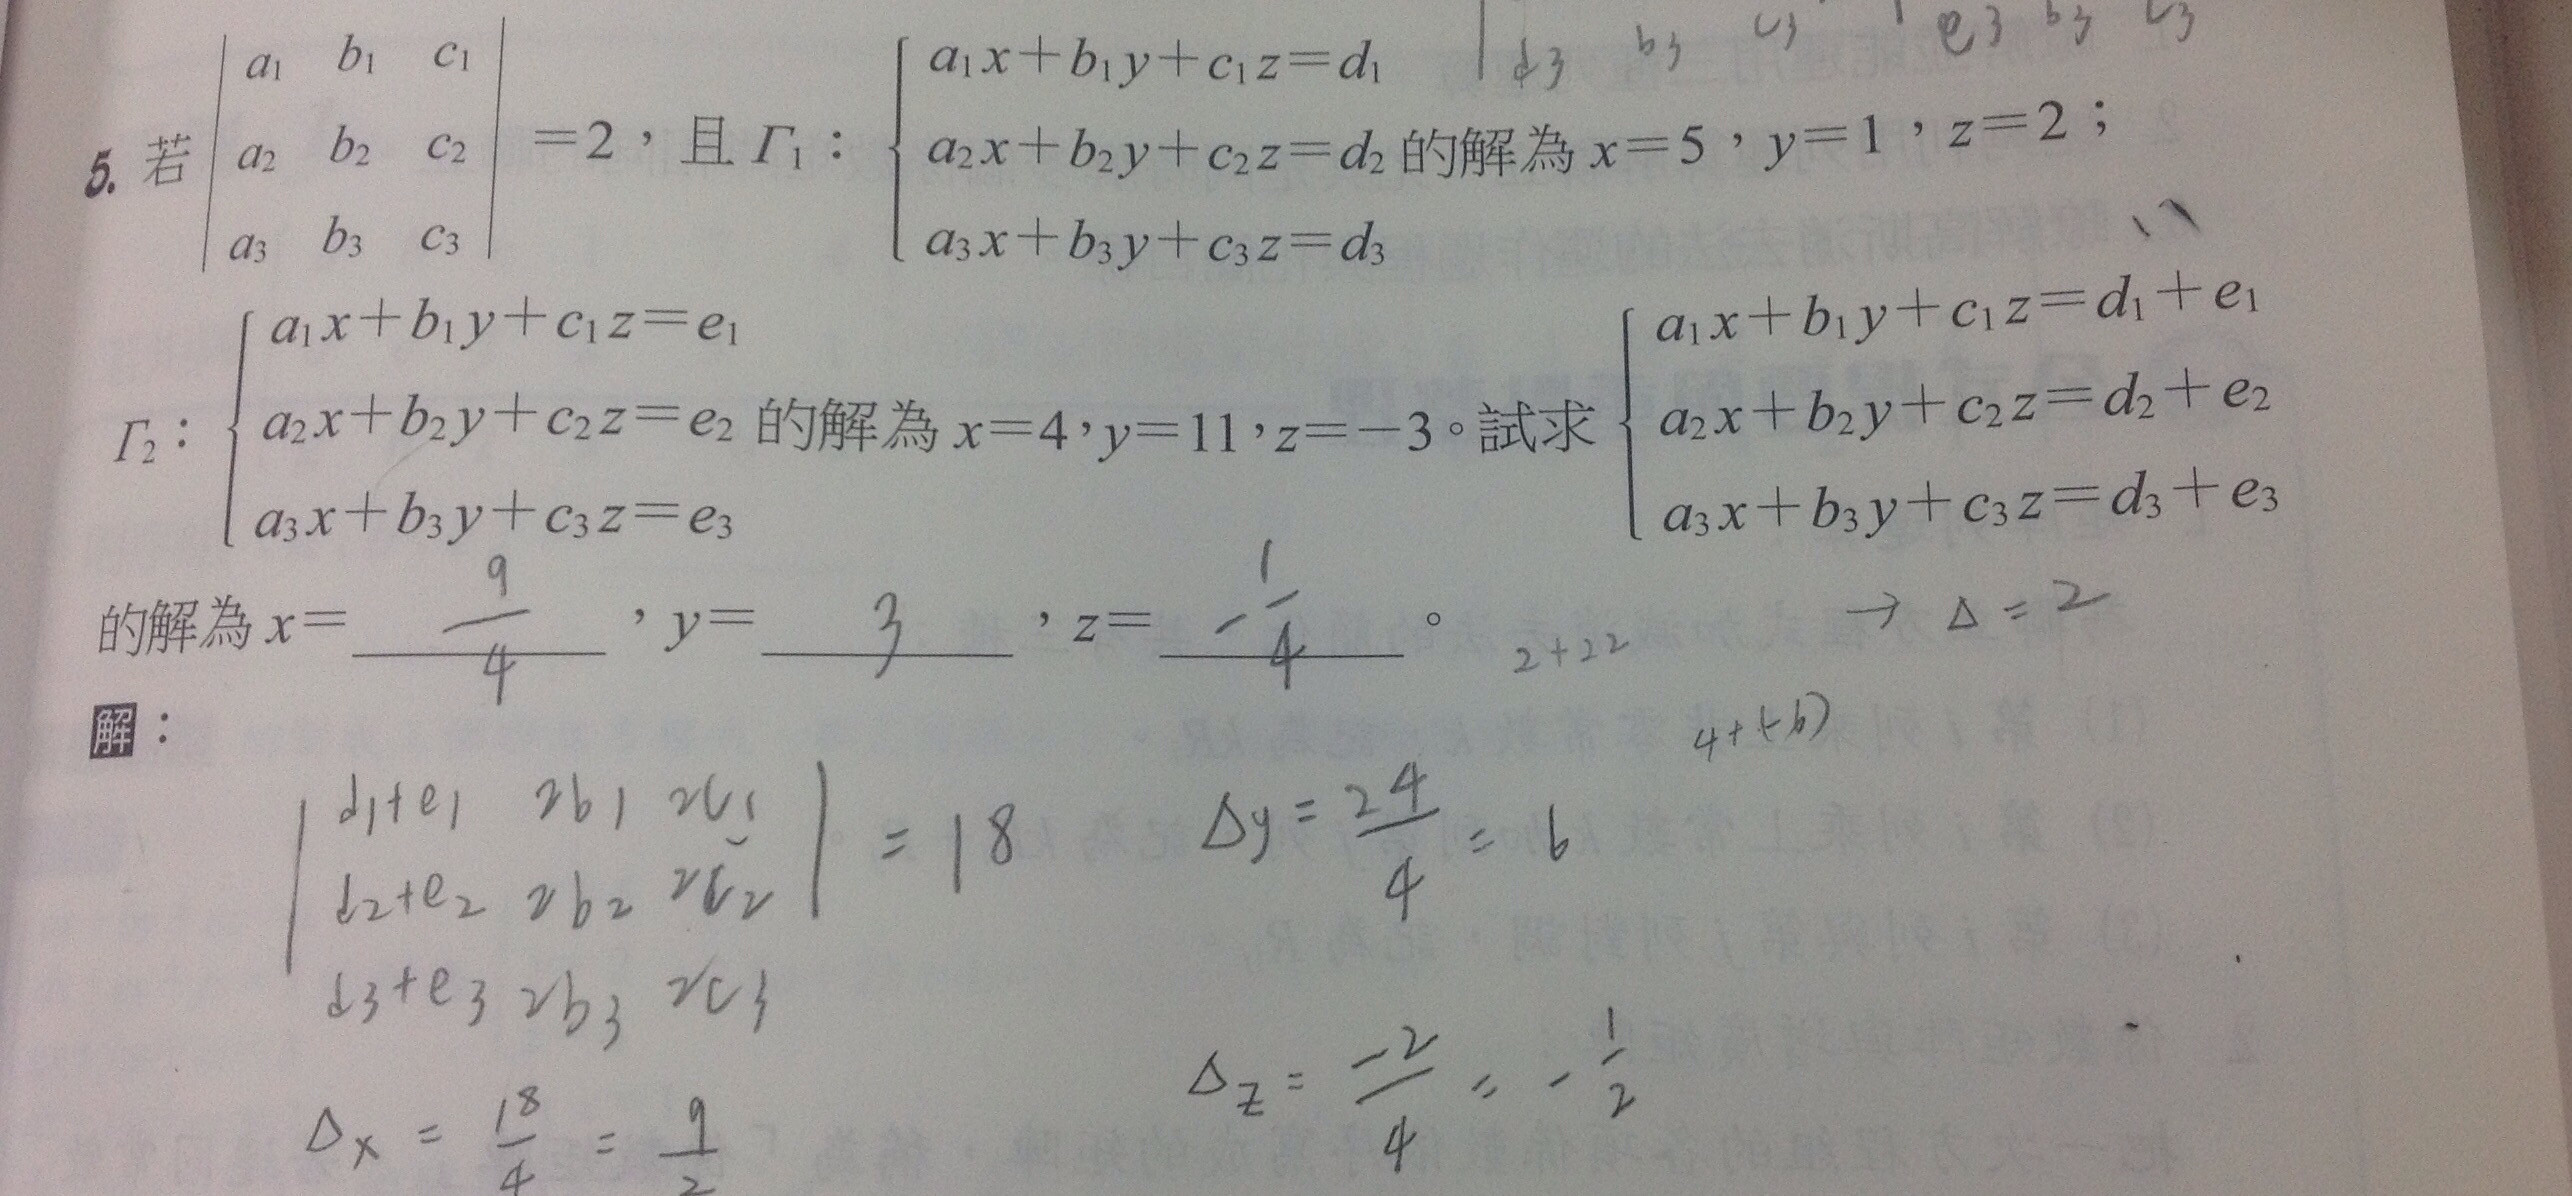 d3 b3 c3 e3 b3 c3
5. 若 | a1 b1 c1 | a2 b2 c2 | a3 b3 c3 | =2，且 Γ1： { a1x+b1y+c1z=d1 a2x+b2y+c2z=d2 a3x+b3y+c3z=d3 的解為 x=5，y=1，z=2；
Γ2： { a1x+b1y+c1z=e1 a2x+b2y+c2z=e2 a3x+b3y+c3z=e3 的解為 x=4，y=11，z=−3。試求 { a1x+b1y+c1z=d1+e1 a2x+b2y+c2z=d2+e2 a3x+b3y+c3z=d3+e3
的解為 x= 9/4 ，y= 3 ，z= -1/4 。
→ Δ = 2
2+22
解：
4+(-6)
| d1+e1 2b1 2c1 | = 18
d2+e2 2b2 2c2
d3+e3 2b3 2c3
Δy = 24/4 = 6
Δx = 18/4 = 9/2
Δz = -2/4 = -1/2